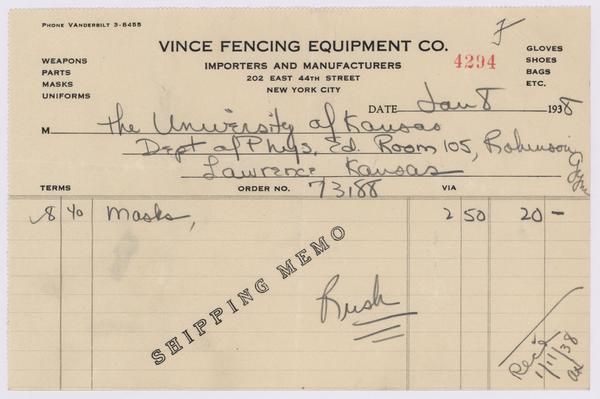 PHONE VANDERBILT 3-8455
F
VINCE FENCING EQUIPMENT CO.
4294
WEAPONS
PARTS
MASKS
UNIFORMS
IMPORTERS AND MANUFACTURERS
202 EAST 44TH STREET
NEW YORK CITY
GLOVES
SHOES
BAGS
ETC.
DATE Jan 8 1938
M The University of Kansas
Dept of Phys. Ed. Room 105, Robinson Gym
Lawrence Kansas
TERMS ORDER NO. 73188 VIA
8 Masks, 2 50 20 -
SHIPPING MEMO
Rush
Rec'd
1/11/38